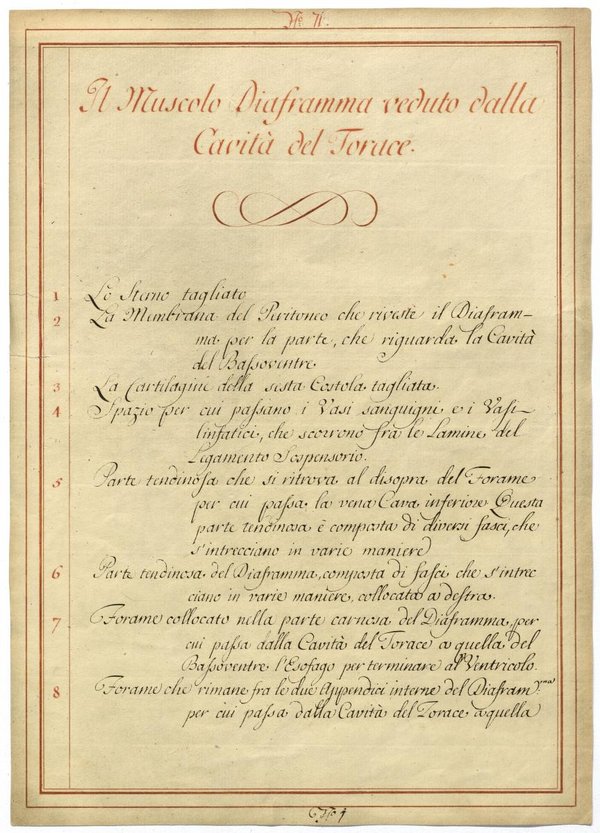 N.º 71.
Il Muscolo Diaframma veduto dalla
Cavità del Torace.
1 Lo Sterno tagliato
2 La Membrana del Peritoneo che riveste il Diafram-
ma per la parte, che riguarda la Cavità
del Baſsoventre.
3 La Cartilagine della sesta Costola tagliata.
4 Spazio per cui paſsano i Vasi sanguigni e i Vaſi
linfatici, che scorrono frà le Lamine del
Legamento Sospensorio.
5 Parte tendinoſa che si ritrova al disopra del Forame
per cui paſsa la vena Cava inferiore Questa
parte tendinosa è composta di diversi fasci, che
s'intrecciano in varie maniere
6 Parte tendinosa del Diaframma, composta di faſci che s'intrec
ciano in varie maniere, collocata a destra.
7 Forame collocato nella parte carnosa del Diaframma, per
cui paſsa dalla Cavità del Torace a quella del
Baſsoventre l'Esofago per terminare al Ventricolo.
8 Forame che rimane fra le due Appendici interne del Diafram.ma
per cui paſsa dalla Cavità del Torace a quella